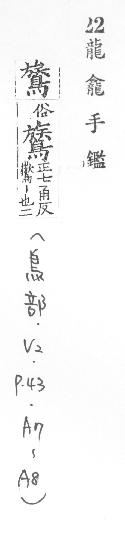 22龍龕手鑑
鷟俗鷟正士角反
鸑|也二
(鳥部.V2.P.43.A7~A8)